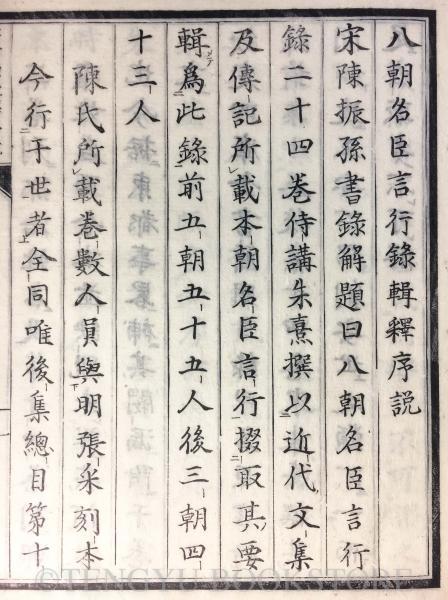 八朝名臣言行錄輯釋序説
宋陳振孫書錄解題曰八朝名臣言行
錄二十四卷侍講朱熹撰以近代文集
及傳記所載本朝名臣言行掇取其要
輯爲此錄前五朝五十五人後三朝四
十三人
陳氏所載卷數人員與明張采刻本
今行于世者全同唯後集總目第十
©TENGYU BOOK STORE